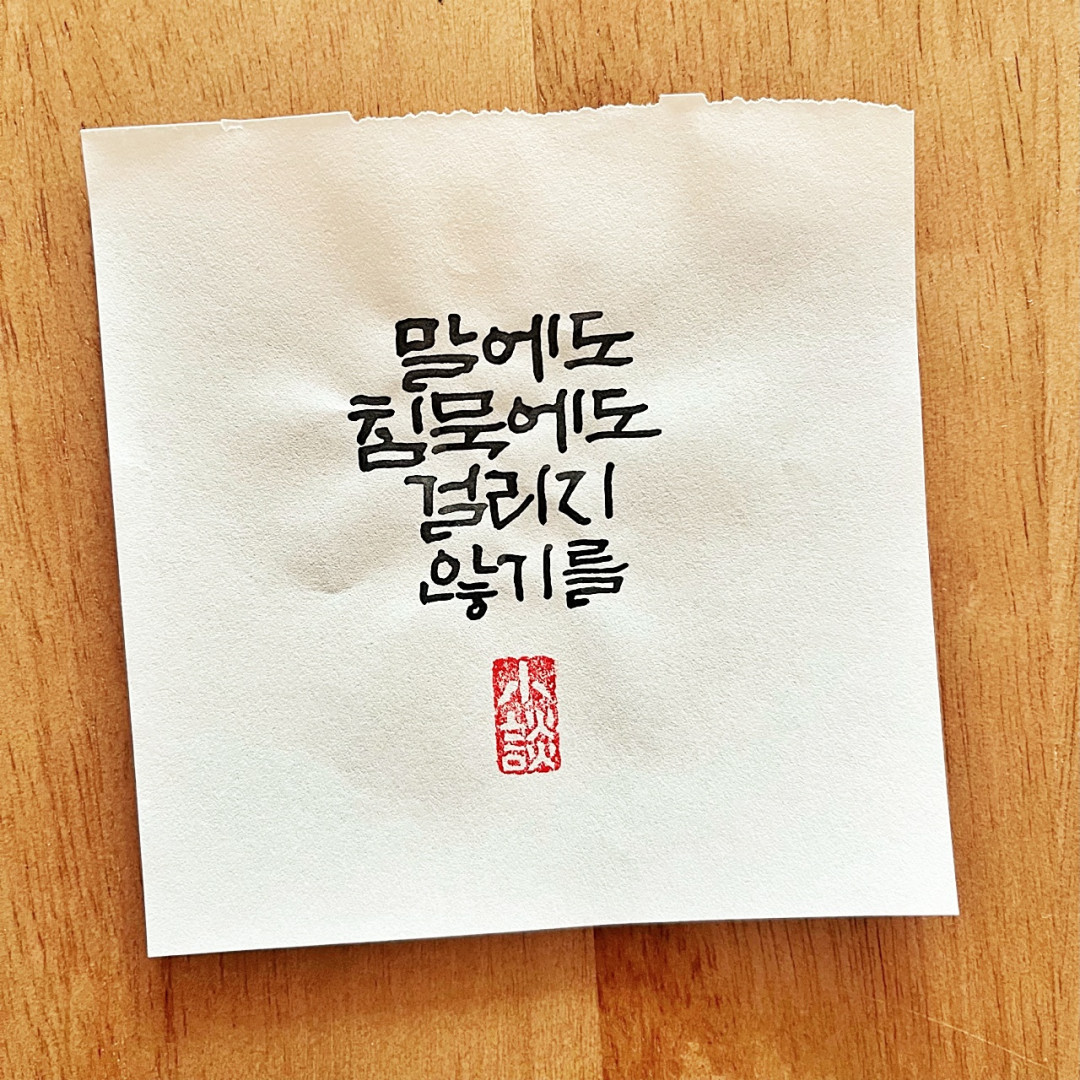 말에도
침묵에도
걸리지
않기를
小談